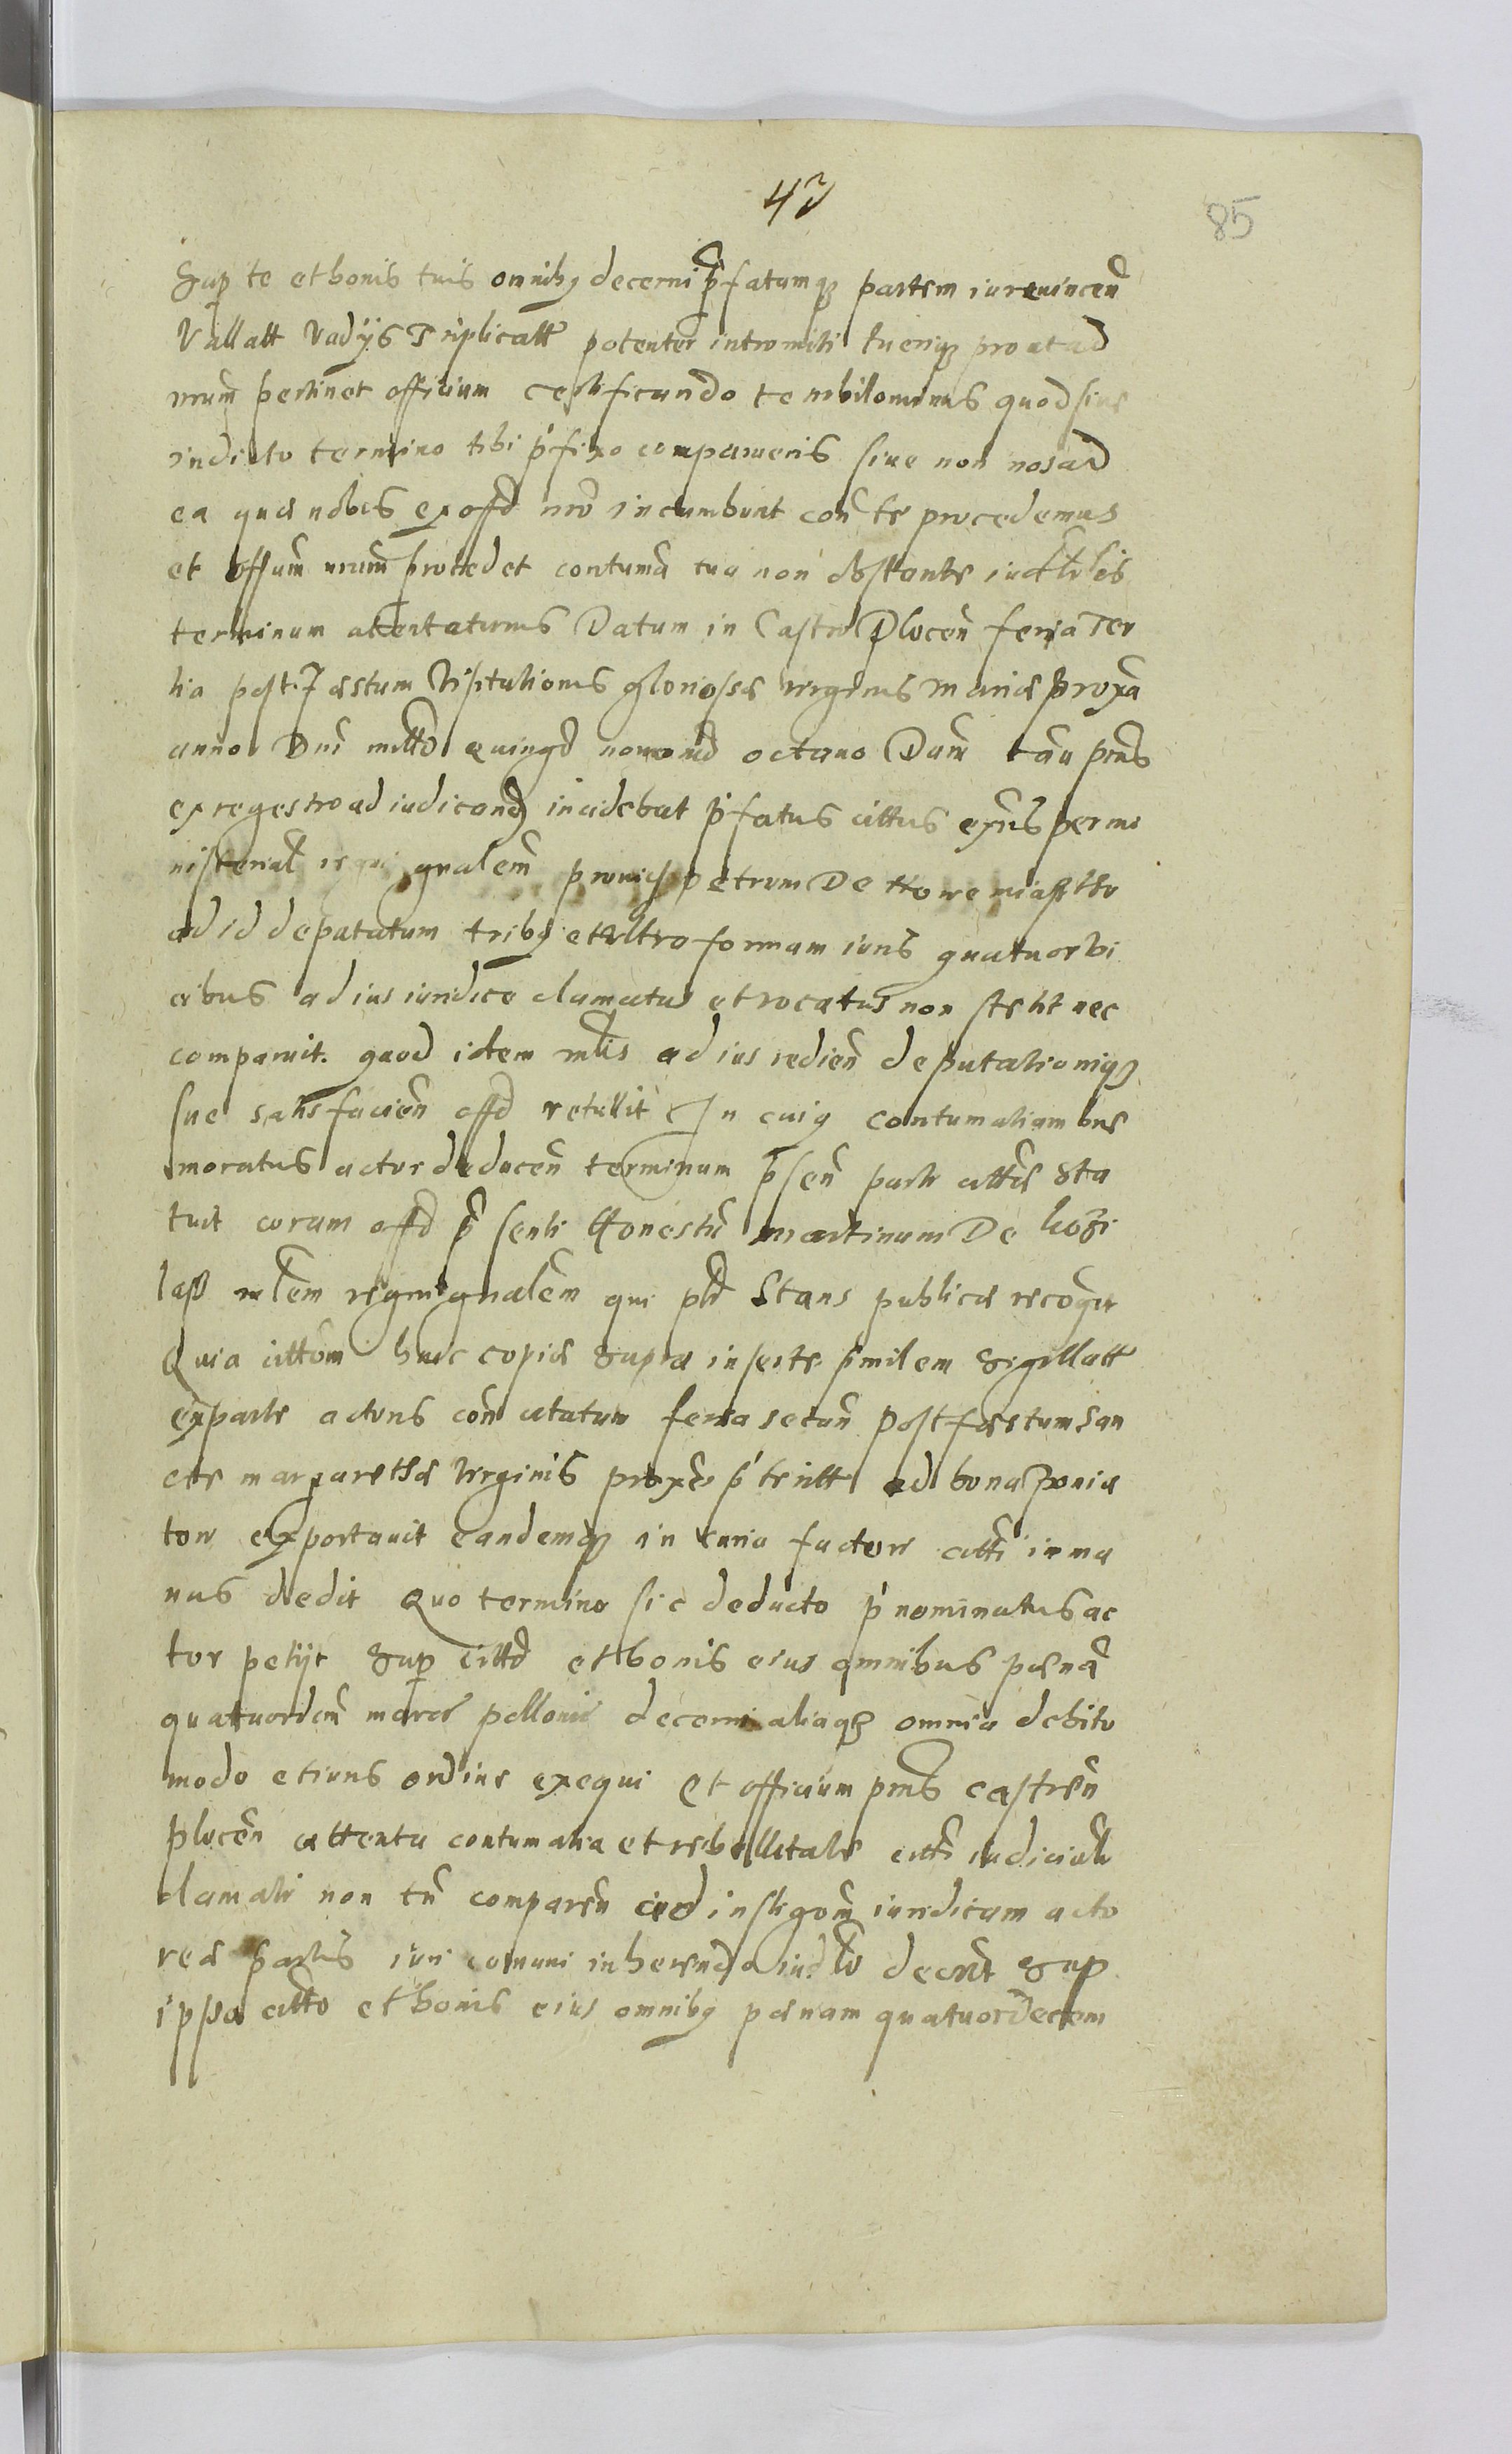 43
85
Sup te et bonis tuis omnibq decerni p̄fatamq partem iureuincen̄
Vallatt Vadijs Triplicatt potenter intromitti tueriq prout ad
nrum̄ pertinet officium certificando te nihilominus quod siue
in dicto termino tibi p̄fixo comparueris siue non nos ad
ea quæ nobis ex offo nro incumbunt con̄ te procedemus
et offum̄ nrum̄ procedet contuma tua non obstante
terminum attentaturus Datum in Castro Plocen̄ feria Ter
tia post Fæstum Visitationis gloriosæ virginis Mariæ proxa
anno Dni millo quingo nonomo octauo Dum̄ cau pn̄s
ex regestro ad iudicand incidebat p̄fatus cittus exn̄s per mi
nisterial regni gnalem̄ prouid petrum De Nowemiastho
ad id deputatum tribq et ultro formam iuris quatuor vi
cibus ad ius iuridice clamatus et vocatus non stetit nec
comparuit. quod idem mlis ad ius redien̄ deputationiq
sue satisfacien̄ offo retullit In cuiq contumatiam bne
moratus actor deducen̄ terminum p̄sen̄ parti cittæ Sta
tuit coram offo p̄senti Honestu martinum De
mlem regni gnalem qui pld Stans publicæ recogut
Quia cittom huic copiæ supra insertæ similem Sigillatt
exparte actoris con̄ citatum feria secun̄ post fæstum San
ctæ margarethæ Virginis proxe p̄teritt ad bona
exportauit eandemq in curia factori citti in ma
nus dedit Quo termino sic deducto p̄nominatus ac
tor petijt Sup citto et bonis eius omnibus pæna
quatuordcm̄ marcr pollonic decerni aliaqr omnia debito
modo et iuris ordine exequi Et officium pn̄s castren̄
plocen̄ attenta contumatia et rebellitate citti iudicialr
clamati non tn̄ comparen̄ ad instigom̄ iuridicam acto
reæ partis iuri comuni inherendo decrit Sup
ipso citto et bonis eius omnibq pænam quatuordecem